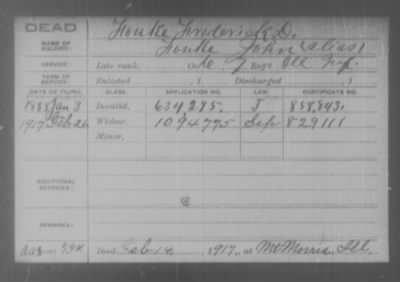 DEAD
NAME OF SOLDIER: Fouke Frederick D.
Fouke John (alias)
SERVICE: Late rank, Co. 7 Reg't Ill Inf.
TERM OF SERVICE: Enlisted , 1 Discharged , 1
DATE OF FILING. CLASS. APPLICATION NO. LAW. CERTIFICATE NO.
1888 Jan 3 Invalid, 634,285. J 858,843.
1917 Feb 26 Widow, 1094775 Sep 829111
Minor,
ADDITIONAL SERVICES:
REMARKS:
Died Feb 1917, at Mt Morris, Ill.